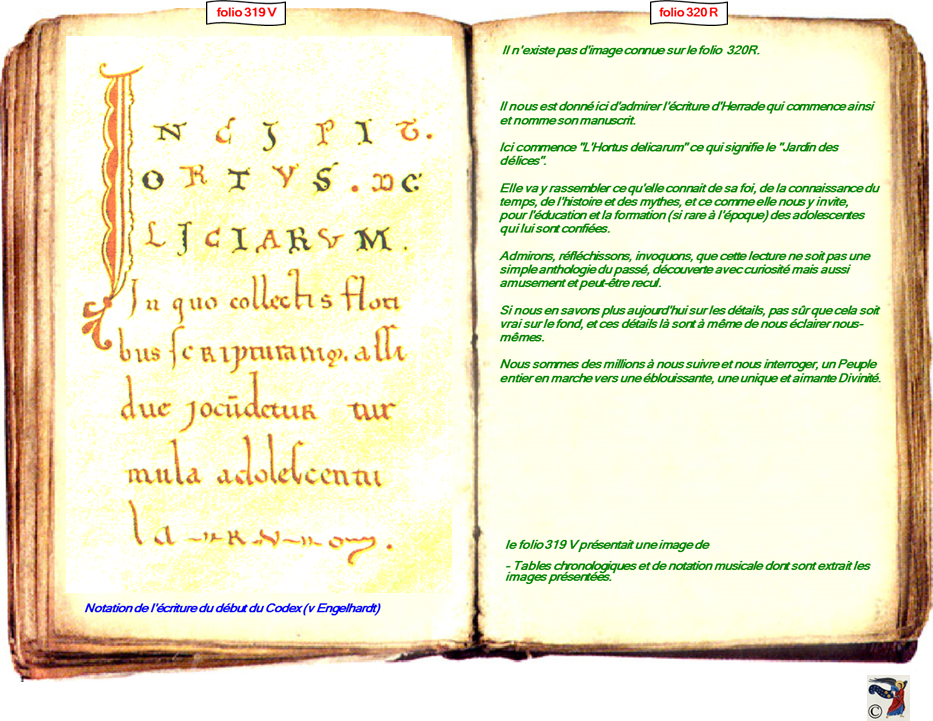 folio 319 V
INCIPIT.
ORTVS. DE
LICIARVM.
In quo collectis flori
bus scripturarum, assi
due jocūdetur tur
mula adolescentu
la
Notation de l'écriture du début du Codex (v Engelhardt)
folio 320 R
Il n'existe pas d'image connue sur le folio 320R.
Il nous est donné ici d'admirer l'écriture d'Herrade qui commence ainsi
et nomme son manuscrit.
Ici commence "L'Hortus delicarum" ce qui signifie le "Jardin des
délices".
Elle va y rassembler ce qu'elle connait de sa foi, de la connaissance du
temps, de l'histoire et des mythes, et ce comme elle nous y invite,
pour l'éducation et la formation (si rare à l'époque) des adolescentes
qui lui sont confiées.
Admirons, réfléchissons, invoquons, que cette lecture ne soit pas une
simple anthologie du passé, découverte avec curiosité mais aussi
amusement et peut-être recul.
Si nous en savons plus aujourd'hui sur les détails, pas sûr que cela soit
vrai sur le fond, et ces détails là sont à même de nous éclairer nous-
mêmes.
Nous sommes des millions à nous suivre et nous interroger, un Peuple
entier en marche vers une éblouissante, une unique et aimante Divinité.
le folio 319 V présentait une image de
- Tables chronologiques et de notation musicale dont sont extrait les
images présentées.
©